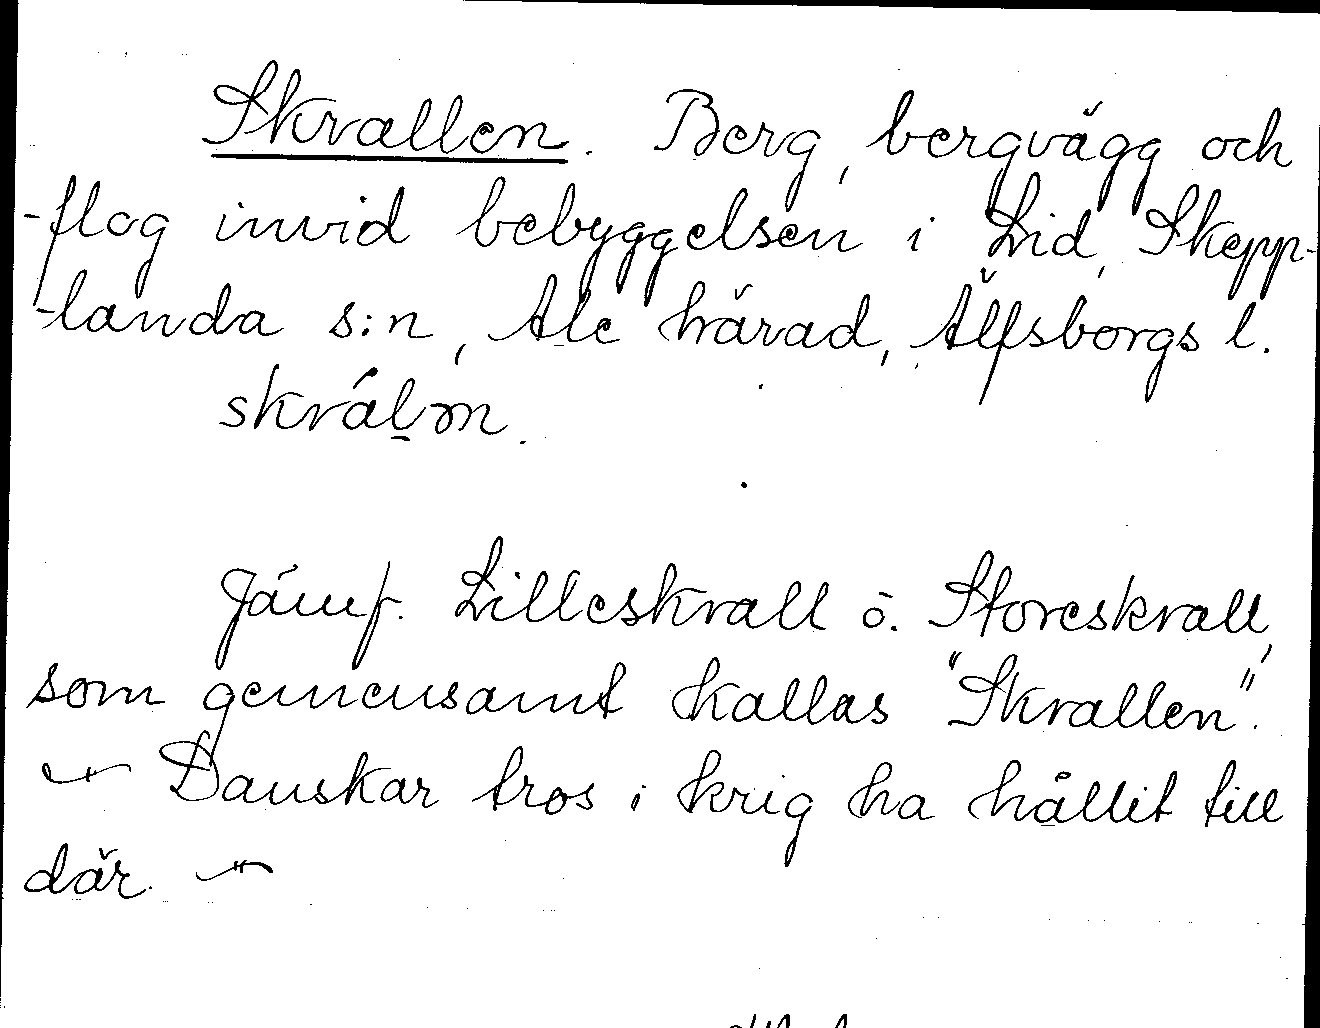 Skrallen. Berg, bergvägg och
-flog invid bebyggelsen i Lid, Skepp-
-landa s:n, Ale härad, Älfsborgs l.
skrálm.
Jämf. Lilleskrall o. Storeskrall,
som gemensamt kallas "Skrallen".
Danskar tros i krig ha hållit till
där.